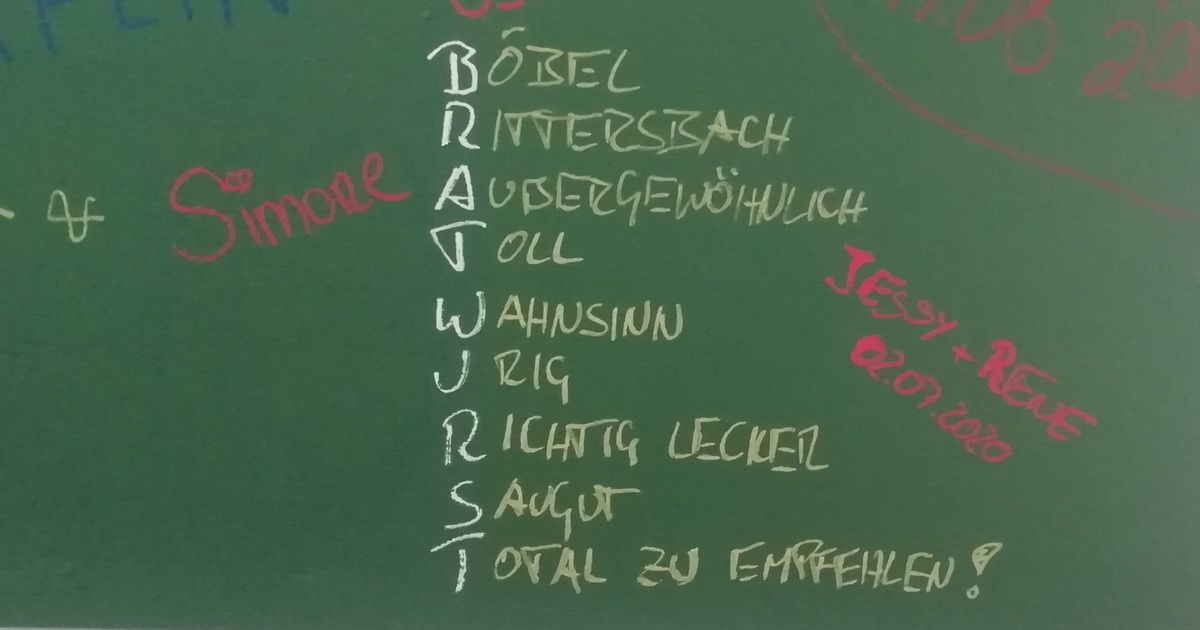 BÖBEL
RITTERSBACH
& Simone
AUßERGEWÖHNLICH
TOLL
WAHNSINN
URIG
JESSY + RENE
02.07.2020
RICHTIG LECKER
SAUGUT
TOTAL ZU EMPFEHLEN!